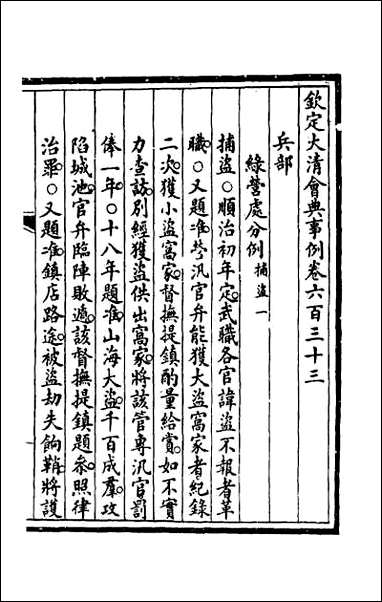 欽定大清會典事例卷六百三十三
兵部
綠營處分例 捕盜一
捕盜○順治初年定武職各官諱盜不報者革
職○又題准專汛官弁能獲大盜窩家者紀錄
二次獲小盜窩家督撫提鎮酌量給賞如不實
力查訪別經獲盜供出窩家將該管專汛官罰
俸一年○十八年題准山海大盜千百成羣攻
陷城池官弁臨陣敗遁該督撫提鎮題參照律
治罪○又題准鎮店路途被盜劫失餉鞘將護